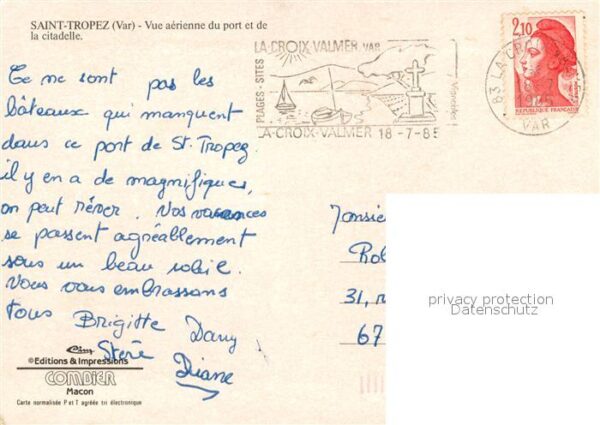 SAINT-TROPEZ (Var) - Vue aérienne du port et de
la citadelle.
Ce ne sont pas les
bâteaux qui manquent
dans ce port de St. Tropez
il y en a de magnifiques,
on peut rêver. Vos vacances
se passent agréablement
sous un beau soleil.
Vous vous embrassons
tous Brigitte Dany
Diane
LA CROIX VALMER VAR
PLAGES - SITES
LA-CROIX-VALMER 18-7-85
2,10
REPUBLIQUE FRANCAISE
83 LA CRO
VAR
31, r
67
privacy protection
Datenschutz
©Editions & Impressions
COMBIER
Macon
Carte normalisée P et T agréée tri électronique